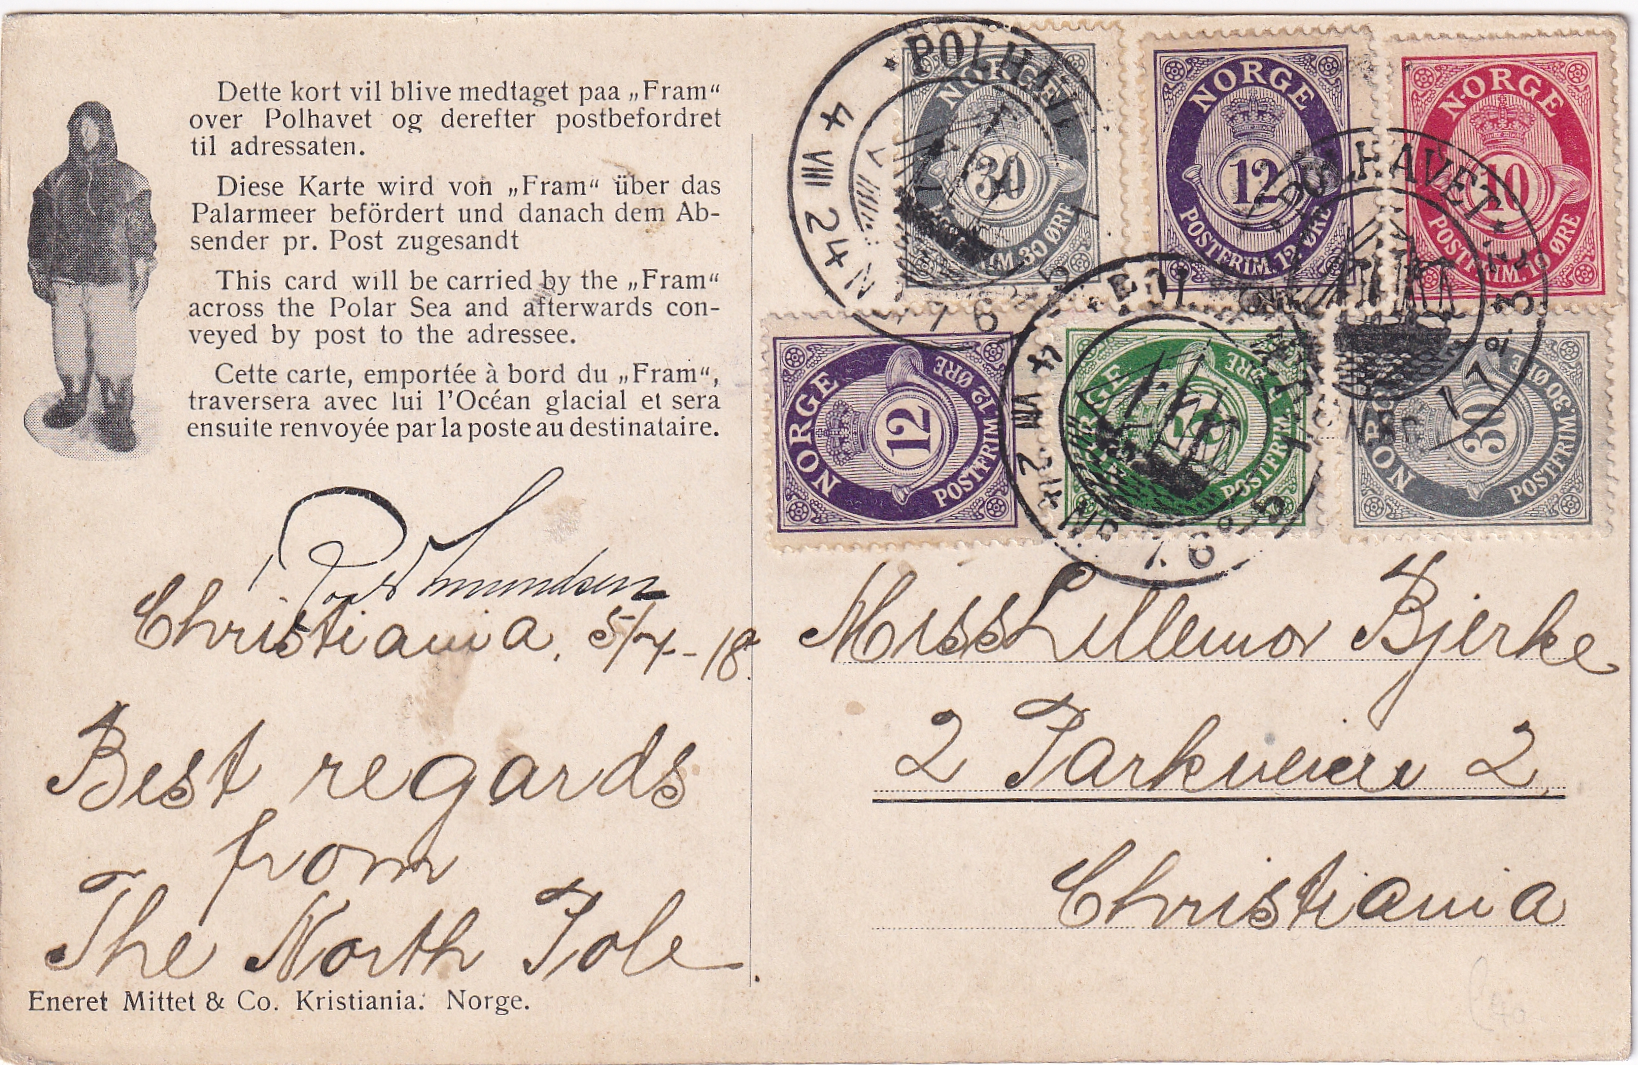 Dette kort vil blive medtaget paa „Fram“
over Polhavet og derefter postbefordret
til adressaten.
Diese Karte wird von „Fram“ über das
Palarmeer befördert und danach dem Ab-
sender pr. Post zugesandt
This card will be carried by the „Fram“
across the Polar Sea and afterwards con-
veyed by post to the adressee.
Cette carte, emportée à bord du „Fram“,
traversera avec lui l'Océan glacial et sera
ensuite renvoyée par la poste au destinataire.
Roald Amundsen
Christiania, 5/4-18.
Best regards
from
The North Pole.
Eneret Mittet & Co. Kristiania. Norge.
POLHAVET
4 VIII 24
NORGE
30
POSTFRIM. 30 ØRE
NORGE
12
POSTFRIM. 12 ØRE
NORGE
10
POSTFRIM. 10 ØRE
POLHAVET
NORGE
12
POSTFRIM. 12 ØRE
4 VIII 24
POSTFRIM. 5 ØRE
NORGE
30
POSTFRIM. 30 ØRE
Miss Lillemor Bjerke
2 Parkveien 2
Christiania